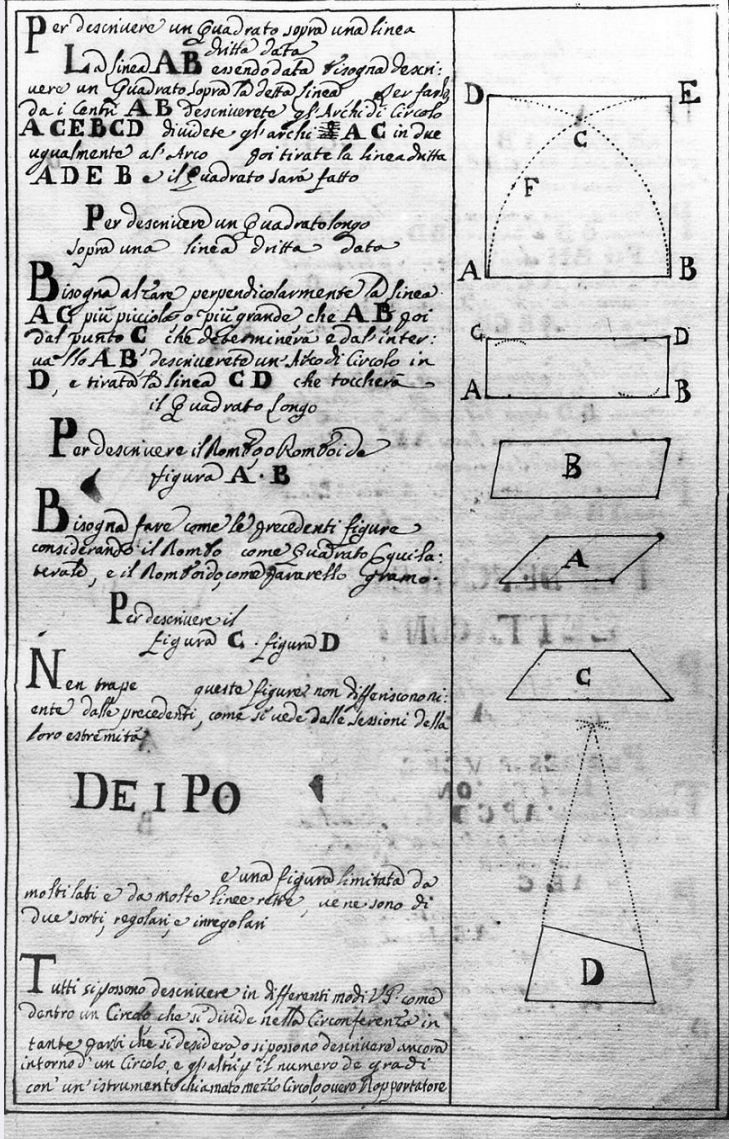 Per descrivere un Quadrato sopra una linea
dritta data
La linea AB essendo data bisogna descri:
vere un Quadrato sopra la detta linea Per farlo
da i Centri AB descriverete gl'Archi di Circolo
ACEBCD dividete gl'archi AC in due
ugualmente al'Arco poi tirate la linea dritta
ADEB e il Quadrato sarà fatto
Per descrivere un Quadrato longo
sopra una linea dritta data
Bisogna alzare perpendicolarmente la linea
AC più piccola o più grande che AB poi
dal punto C che determinerà e dal'inter:
vallo AB descriverete un'Arco di Circolo in
D, e tirata la linea CD che toccherà
il Quadrato Longo
Per descrivere il Rombo o Romboide
figura A · B
Bisogna fare come le precedenti figure
considerando il Rombo come Quadrato Equila:
terale, e il Romboide, come Pararello gramo.
Per descrivere il
figura C · figura D
Nen trape queste figure non differiscono ni:
ente dalle precedenti, come si vede dalle sessioni della
loro estremità
DE I PO
e una figura limitata da
molti lati e da molte linee rette, ve ne sono di
due sorti, regolari, e irregolari
Tutti si possono descrivere in differenti modi V.P. come
dentro un Circolo che si divide nella Circonferenza in
tante parti che si desidera o si possono descrivere ancora
intorno d'un Circolo, e gl'altri p il numero de gradi
con un'istrumento chiamato mezzo Circolo, overo Rapportatore
D E
C
F
A B
C D
A B
B
A
C
D